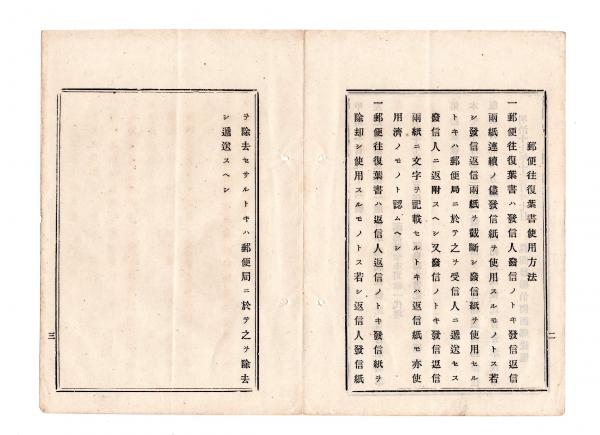 郵便往復葉書使用方法
一郵便往復葉書ハ發信人發信ノトキ發信返信
兩紙連續ノ儘發信紙ヲ使用スルモノトス若
シ發信返信兩紙ヲ截斷シ發信紙ヲ使用セル
トキハ郵便局ニ於テ之ヲ受信人ニ遞送セス
發信人ニ返附スヘシ又發信ノトキ發信返信
兩紙ニ文字ヲ記載セルトキハ返信紙モ亦使
用濟ノモノト認ムヘシ
一郵便往復葉書ハ返信人返信ノトキ發信紙ヲ
除却シ使用スルモノトス若シ返信人發信紙
二
ヲ除去セサルトキハ郵便局ニ於テ之ヲ除去
シ遞送スヘシ
三